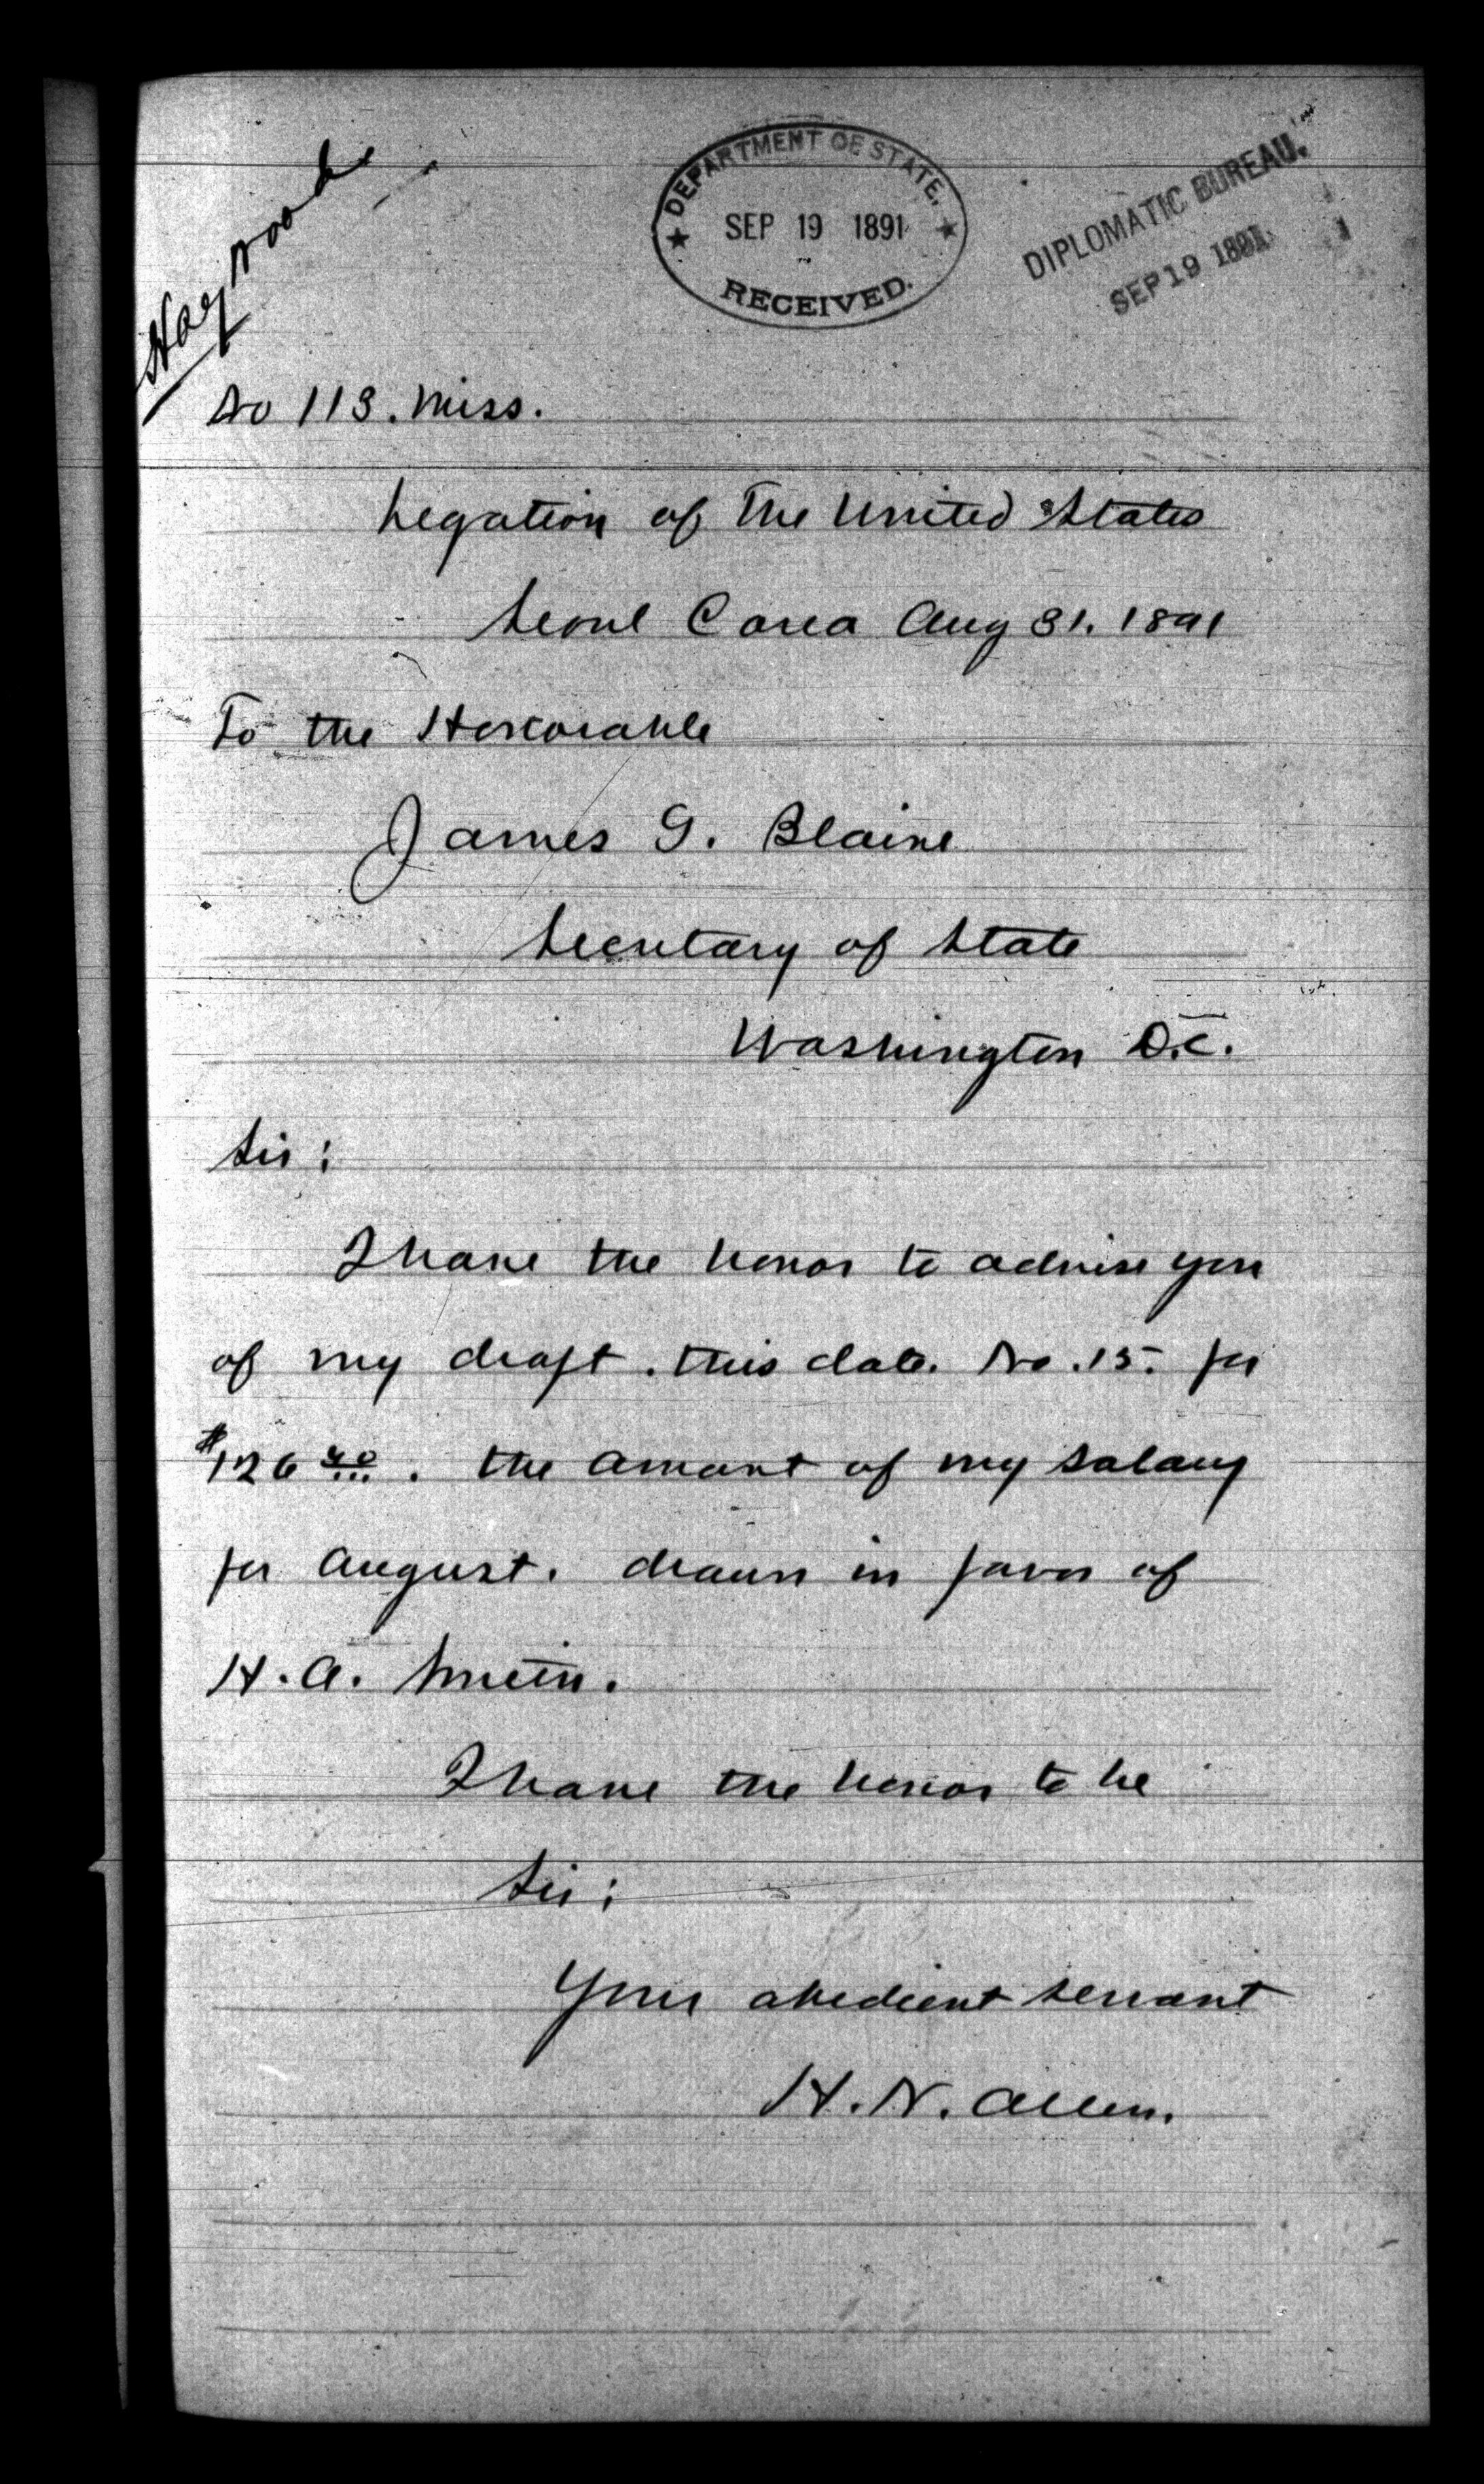 Haywood
DEPARTMENT OF STATE.
SEP 19 1891
RECEIVED.
DIPLOMATIC BUREAU.
SEP 19 1891
No 113. Miss.
Legation of The United States
Seoul Corea Aug 31. 1891
To the Honorable
James G. Blaine
Secretary of State
Washington D.C.
Sir:
I have the honor to advise you
of my draft. this date. No. 15. for
$126 40. the amount of my salary
for August. drawn in favor of
H. A. Smith.
I have the honor to be
Sir:
Your obedient servant
H. N. Allen.